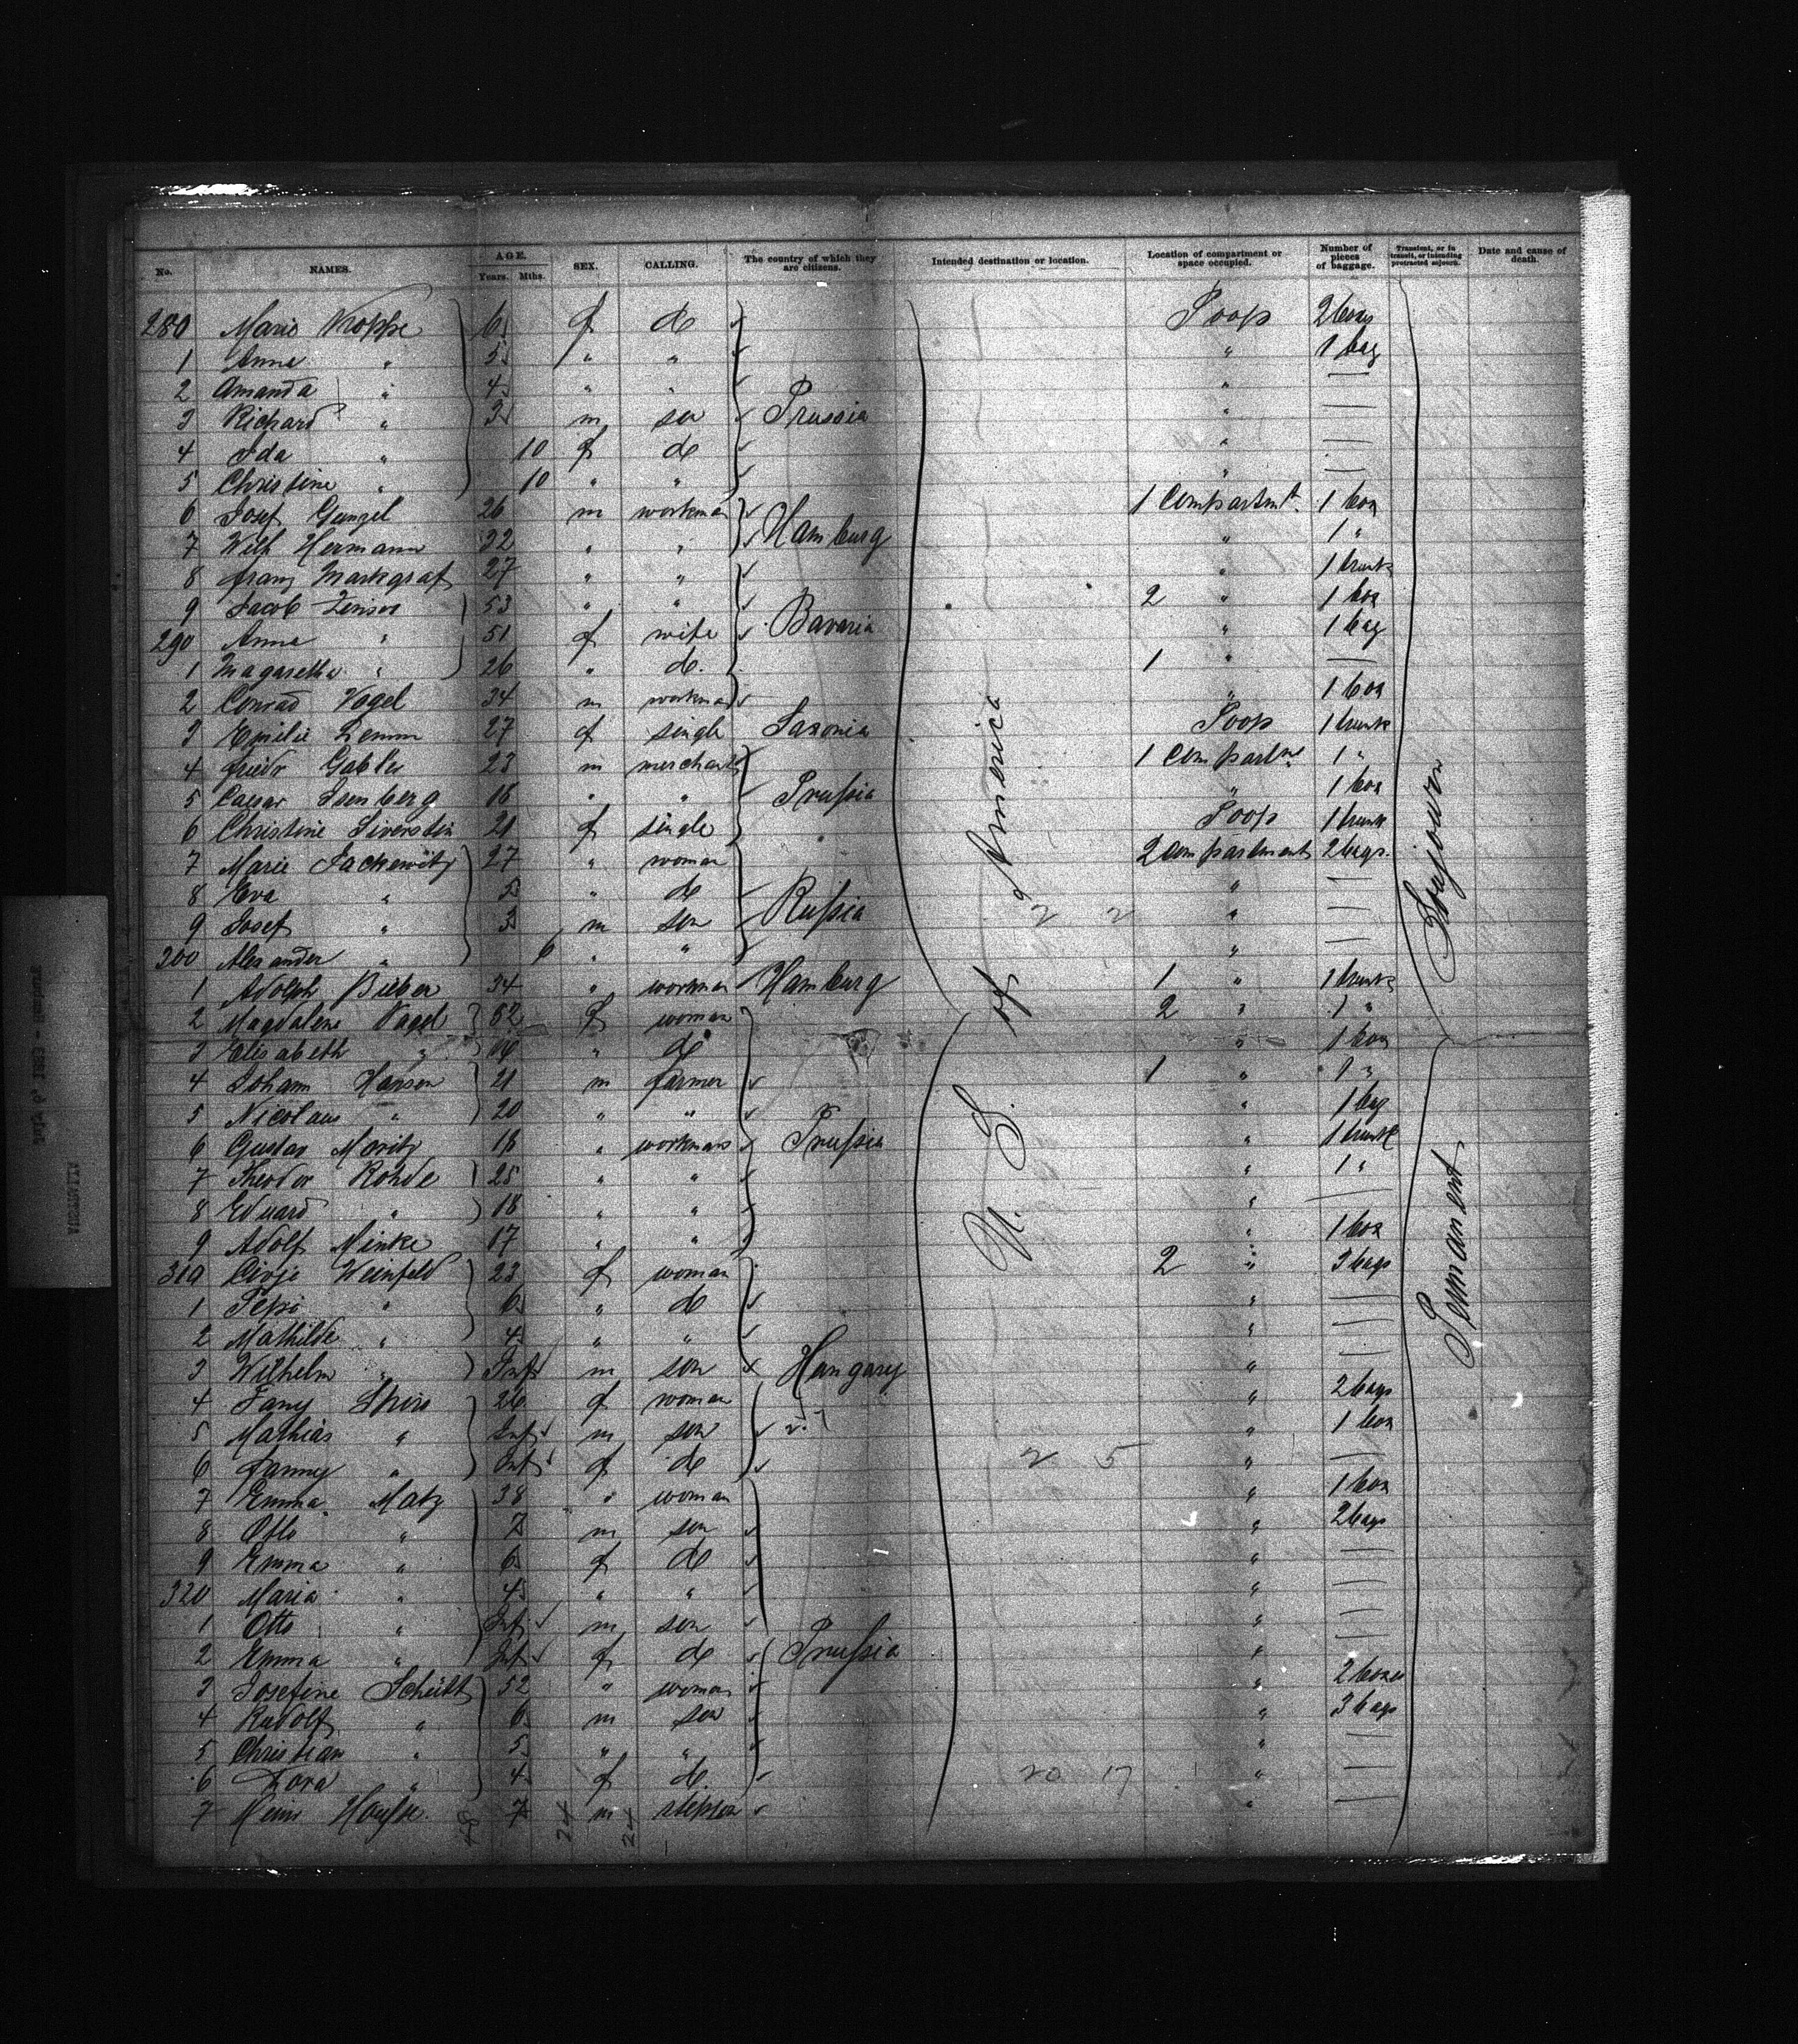 No. NAMES. AGE. Years. Mths. SEX. CALLING. The country of which they are citizens. Intended destination or location. Location of compartment or space occupied. Number of pieces of baggage. Transient, or in transit, or intending protracted sojourn. Date and cause of death.
280 Marie Koppe 6 f do Poop 2 boxs
1 Anna " 5 " " " 1 bag
2 Amanda " 4 " " " —
3 Richard " 3 m son Prussia " —
4 Ida " 10 f do " —
5 Christine " 10 " " " —
6 Josef Gunzel 26 m workman 1 Compartmt. 1 box
7 Wilh Hermann 32 " " Hamburg " 1 "
8 franz Markgraf 27 " " " 1 trunk
9 Jacob 53 " " 2 " 1 box
290 Anna " 51 f wife Bavaria " 1 bag
1 Magaretha " 26 " do. 1 " —
2 Conrad Vogel 34 m workman " 1 box
3 Emilie Lemm 27 f single Saxonia Poop 1 trunk
4 friedr Gabler 23 m merchant 1 Compartm 1 "
5 Caesar Isenberg 18 " " Prussia " 1 box
6 Christine 21 f single Poop 1 trunk
7 Marie Jackewitz 27 " woman 2 compartment 2 bags.
8 Eva " 5 " do Russia " —
9 Josef " 3 m son " —
300 Alexander " 6 " " " —
1 Adolph Bieber 34 " workman Hamburg 1 " 1 trunk
2 Magdalene Vagel 52 f woman 2 " 1 "
3 Elisabeth " 14 " do " 1 box
4 Johann Hansen 21 m farmer 1 " 1 "
5 Nicolaus " 20 " " " 1 bag
6 Gustav Moritz 18 " workman Prussia " 1 trunk
7 Theodor Rohde 25 " " " 1 "
8 Eduard " 18 " " " —
9 Adolf Minke 17 " " " 1 box
310 Weinfeld 23 f woman 2 " 3 bags
1 Pepi " 6 " do " —
2 Mathilde " 4 " " " —
3 Wilhelm " Inf m son Hungary " —
4 Fany 26 f woman " 2 bags
5 Mathias " Inf m son " 1 box
6 fanny " Inf f do 2 5 " —
7 Emma Matz 38 " woman " 1 box
8 Otto " 7 m son " 2 bags
9 Emma " 6 f do " —
320 Maria " 4 " " " —
1 Otto " Inf m son " —
2 Emma " Inf f do Prussia " —
3 Josefine Scheidt 52 " woman " 2 boxes
4 Rudolf " 6 m son " 3 bags
5 Christian " 5 " " " —
6 Dora " 4 f do. 20 17 " —
7 Heinr 7 m stepson " —
U. S. of America
Sojourn
Permanent